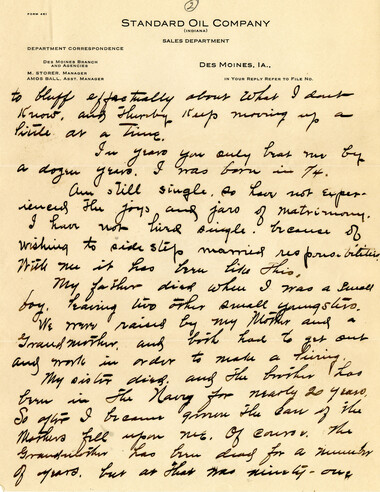 FORM 481
2
STANDARD OIL COMPANY
(INDIANA)
SALES DEPARTMENT
DEPARTMENT CORRESPONDENCE
DES MOINES BRANCH
AND AGENCIES
M. STORER, MANAGER
AMOS BALL, ASST. MANAGER
DES MOINES, IA.,
IN YOUR REPLY REFER TO FILE NO.
to bluff effectually about what I dont
know, and thereby keep moving up a
little at a time.
In years you only beat me by
a dozen years. I was born in 74.
Am still single, so have not exper-
ienced the joys and jars of matrimony.
I have not lived single because of
wishing to side step married responsibilities
With me it has been like this.
My father died when I was a small
boy, leaving two other small youngsters.
We were raised by my Mother and a
Grandmother, and both had to get out
and work in order to make a living.
My sister died, and the brother has
been in the Navy for nearly 20 years.
So after I became grown the care of the
Mothers fell upon me. Of course the
Grandmother has been dead for a number
of years, but at that was ninety-one